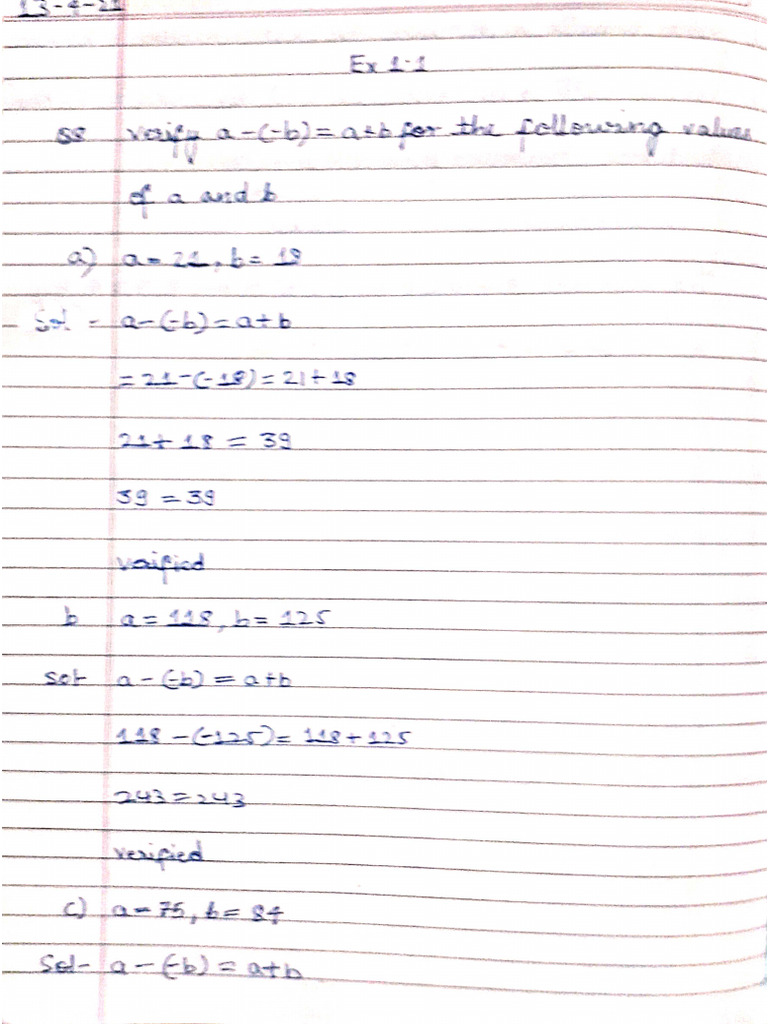 13-4-21
Ex 1.1
verify a-(-b)=a+b for the following values
of a and b
a) a= 21, b= 18
Sol - a-(-b)=a+b
=21-(-18)=21+18
21+18=39
39=39
verified
b a=118, b=125
Sol a-(-b)=a+b
118-(-125)=118+125
243=243
verified
c) a=75, b=84
Sol- a-(-b)=a+b